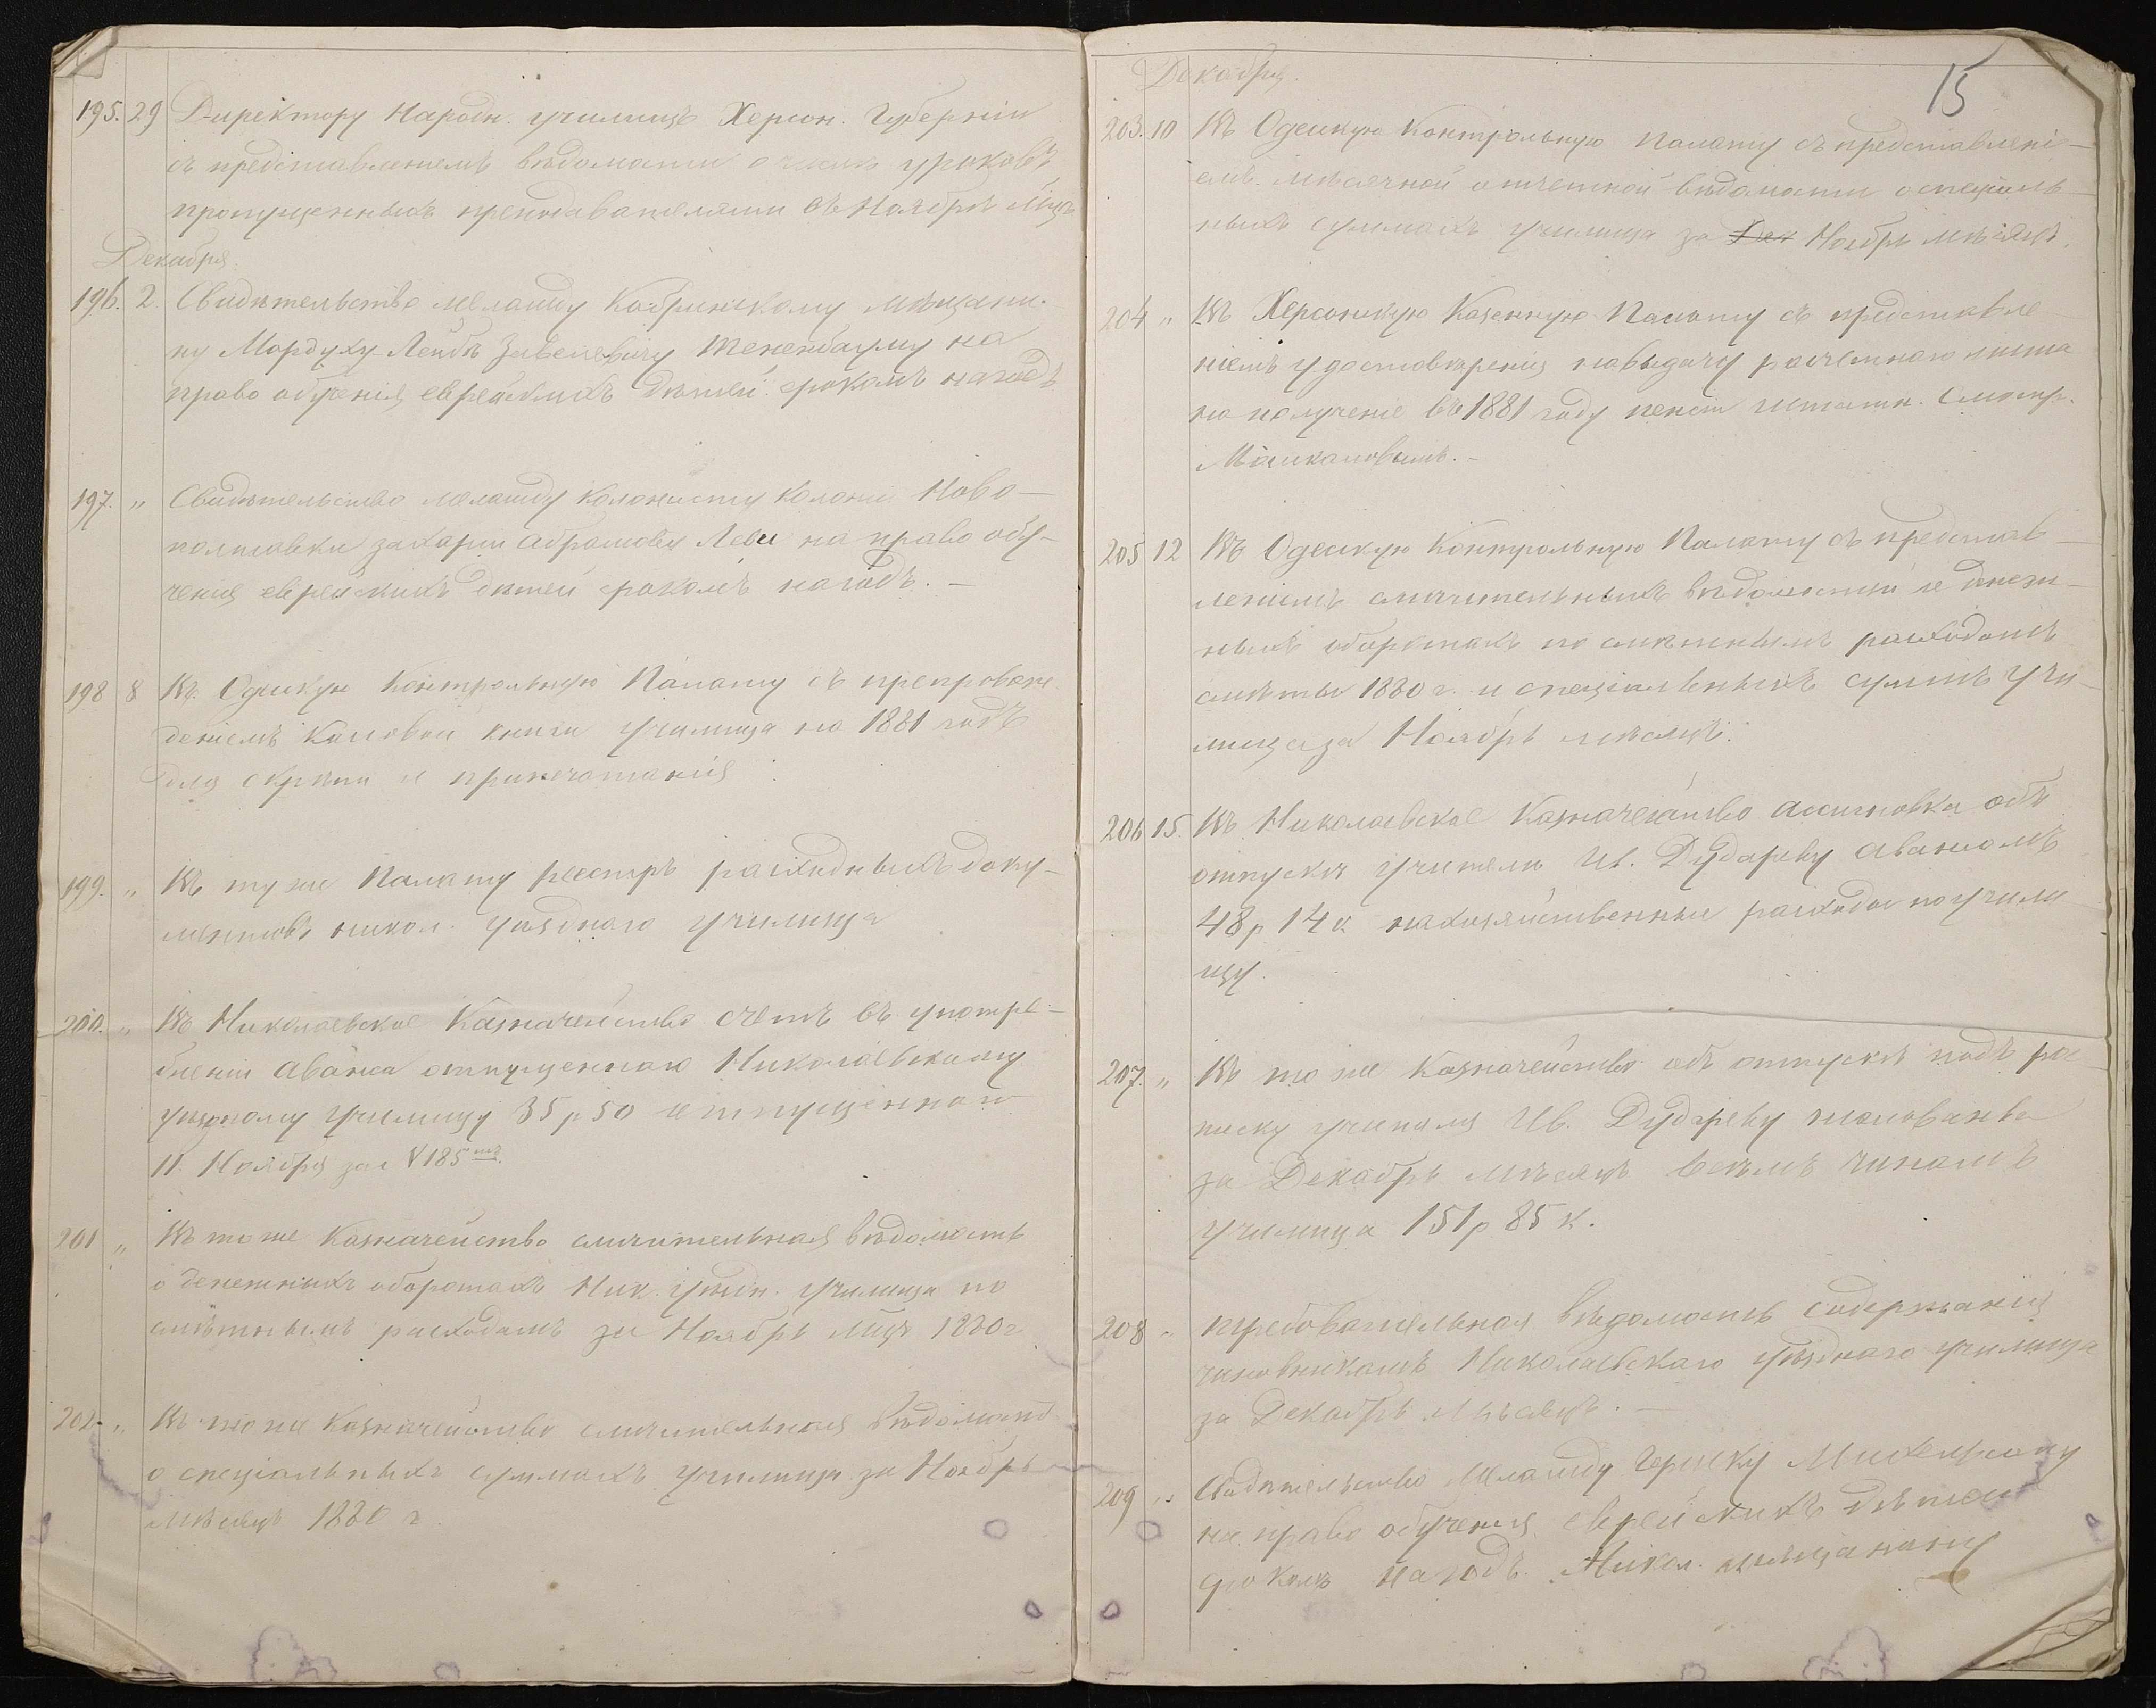 195. 29 Директору Народн. училищъ Херсон. Губерніи
съ представленіемъ вѣдомости о числѣ уроковъ
пропущенныхъ преподавателями въ Ноябрѣ м-цѣ
Декабря.
196. 2. Свидѣтельство меламду Кобринскому мѣщани-
ну Мордуху-Лейбѣ Завелевичу Тененбауму на
право обученія еврейскихъ дѣтей срокомъ на годъ
197. " Свидѣтельство меламду колонисту колоніи Ново-
полтавки Захарію Абрамову Леви на право обу-
ченія еврейскихъ дѣтей срокомъ на годъ. —
198 8 Въ Одесскую Контрольную Палату съ препровож-
деніемъ кассовой книги училища на 1881 годъ
для скрѣпы и припечатанія
199. " Въ ту же Палату реестръ расходныхъ доку-
ментовъ никол. уѣзднаго училища
200. " Въ Николаевское Казначейство счетъ въ употре-
бленіи аванса отпущеннаго Николаевскому
уѣздному училищу 35 р 50 отпущеннаго
11 Ноября за № 185
201 " Въ то же Казначейство сличительная вѣдомость
о денежныхъ оборотахъ Ник. уѣздн. училища по
смѣтнымъ расходамъ за Ноябрь м-цъ 1880 г
202. " Въ то же Казначейство сличительная вѣдомость
о спеціальныхъ суммахъ училища за Ноябрь
мѣсяцъ 1880 г.
15
Декабря.
203. 10 Въ Одесскую Контрольную Палату съ представлені-
емъ мѣсячной отчетной вѣдомости о спеціаль-
ныхъ суммахъ училища за Дек Ноябрь мѣсяцъ.
204 " Въ Херсонскую Казенную Палату съ представле
ніемъ удостовѣренія на выдачу расчетнаго листа
на полученіе въ 1881 году пенсіи штатн. смотр.
205 12 Въ Одесскую Контрольную Палату съ представ-
леніемъ сличительныхъ вѣдомостей о денеж-
ныхъ оборотахъ по смѣтнымъ расходамъ
смѣты 1880 г. и спеціальныхъ суммъ учи-
лища за Ноябрь мѣсяцъ.
206 15. Въ Николаевское Казначейство ассигновка объ
отпускѣ учителю Ив. Дудареву авансомъ
48 р 14 к на хозяйственные расходы по учили
щу.
207. " Въ то же Казначейство объ отпускѣ подъ рос
писку учителя Ив. Дудареву жалованья
за Декабрь мѣсяцъ всѣмъ чинамъ
училища 151 р 85 к.
208 " требовательная вѣдомость содержанія
чиновникамъ Николаевскаго уѣзднаго училища
за Декабрь мѣсяцъ. —
209 " Свидѣтельство меламду Гершку
на право обученія еврейскихъ дѣтей
срокомъ на годъ. Никол. мѣщанину